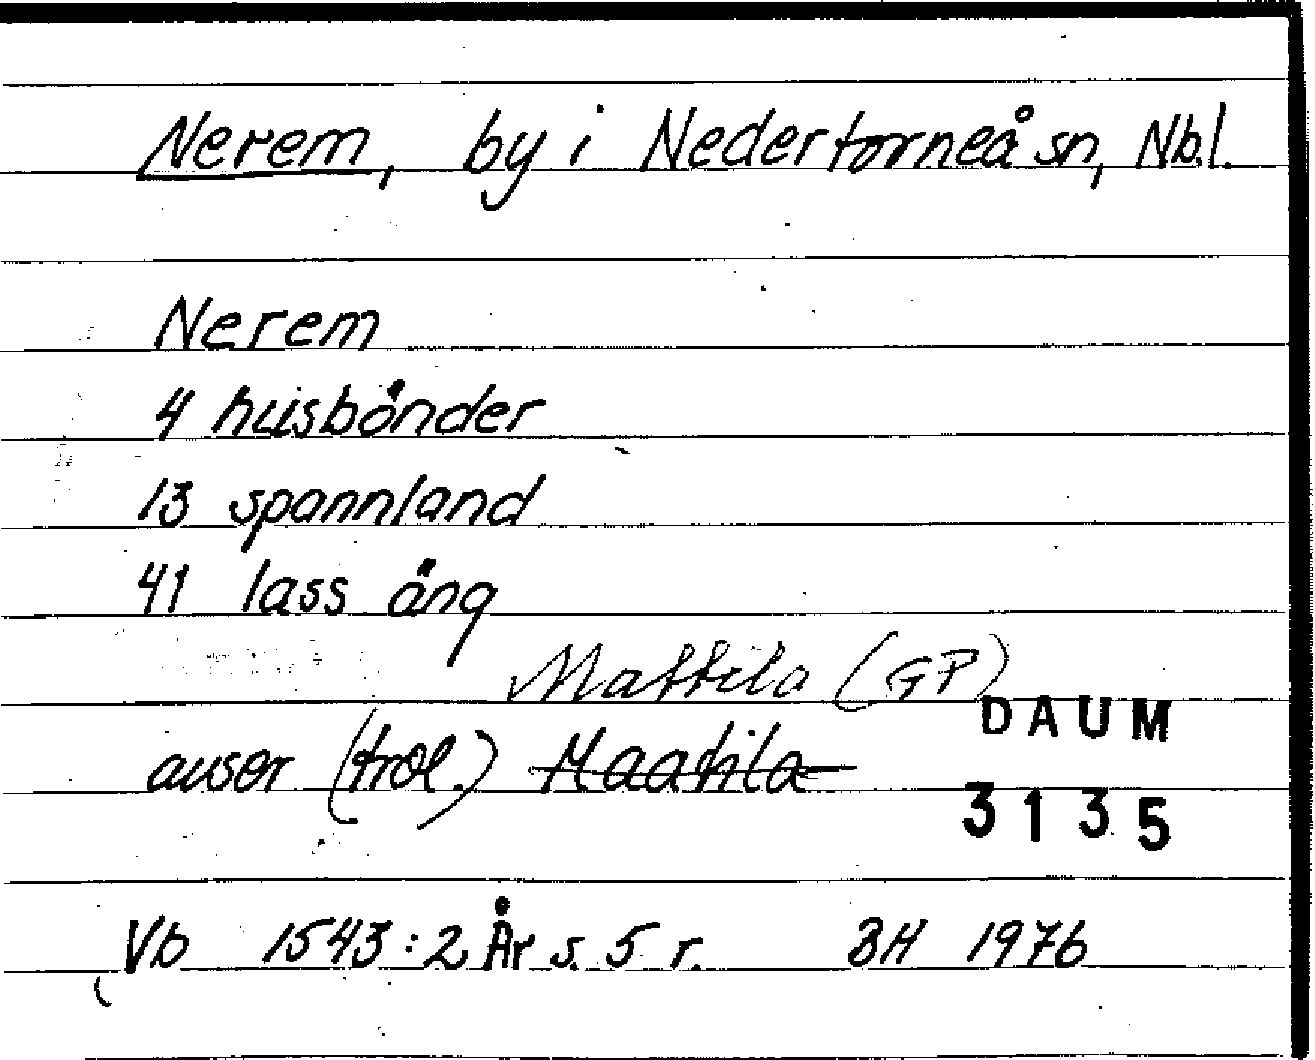 Nerem, by i Nedertorneå sn, Nbl.
Nerem
4 husbönder
13 spannland
41 lass äng
Mattila (GP)
avser (trol.) Maatila
DAUM
3135
Vb 1543:2 År s. 5 r. BH 1976